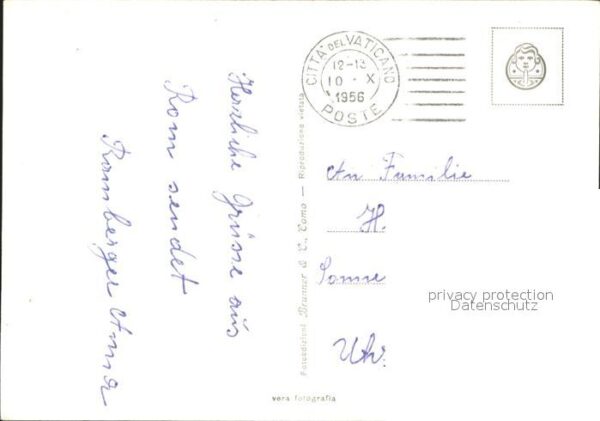 Herzliche Grüsse aus
Rom sendet
Ramberger Anna
CITTA' DEL VATICANO
12-13
10 · X
1956
POSTE
Fotoedizioni Brunner & C., Como — Riproduzione vietata
An Familie
H.
Sonne
Uhr.
privacy protection
Datenschutz
vera fotografia